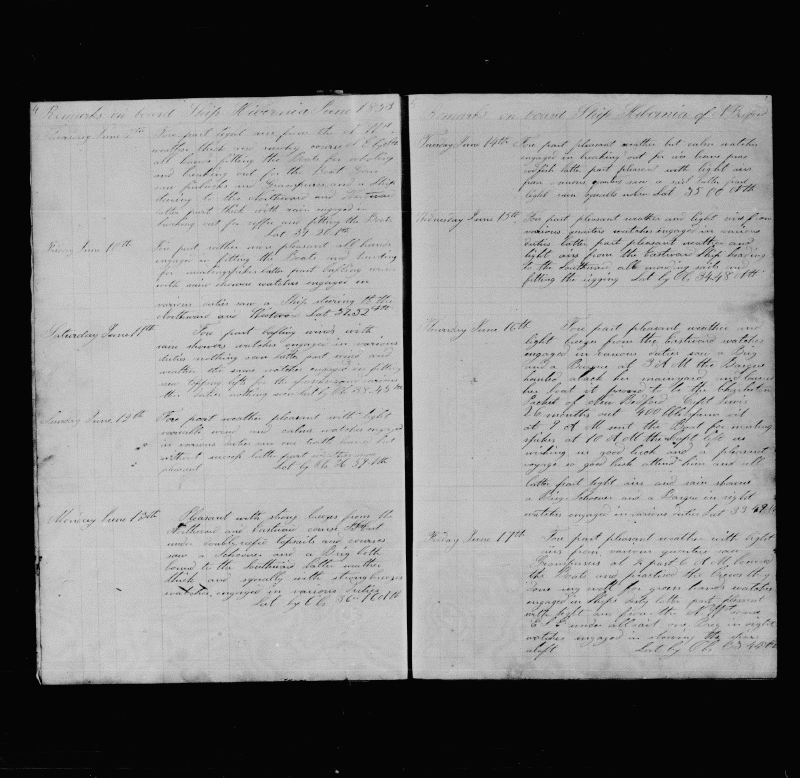 Remarks on board Ship Hibernia June 1853
Thursday June 9th Fore part light airs from the N W
weather thick and course
all hands fitting the Boats for whaling
and breaking out for the Boat Gear
saw finbacks and Grampuses and a Ship
steering to the Northward and Eastward
latter part thick with rain engaged in
breaking out for and fitting the Boats
Lat 37 20 Nth
Friday June 10th Fore part rather more pleasant all hands
engaged in fitting the Boats and
for latter part baffling winds
with rain showers watches engaged in
various duties saw a Ship steering to the
Northward and Westward Lat Nth
Saturday June 11th Fore part baffling winds with
rain showers watches engaged in various
duties nothing saw latter part wind and
weather the same watches engaged in fitting
new topping lifts for the various
other duties nothing seen Lat by Ob 38.45 Nth
Sunday June 12th Fore part weather pleasant with light
variable winds and calms watches engaged
in various duties saw one
without success latter part
pleasant Lat by Ob 37 Nth
Monday June 13th Pleasant with strong breezes from the
Northward and Eastward course
under double reefed topsails and courses
saw a Schooner and a Brig both
bound to the Southward latter weather
thick and squally with strong breezes
watches engaged in various duties
Lat by Ob 36.16 Nth
Remarks on board Ship Hibernia of N Bedford
Tuesday June 14th Fore part pleasant weather but calm watches
engaged in breaking out for
latter part pleasant with light airs
from various quarters saw a latter part
light rain squalls Lat 35 08 Nth
Wednesday June 15th Fore part pleasant weather and light airs from
various quarters watches engaged in various
duties latter part pleasant weather and
light airs from the Eastward Ship heading
to the Southward all sails and
fitting the rigging Lat by Ob 34.48 Nth
Thursday June 16th Fore part pleasant weather and
light breezes from the Eastward watches
engaged in various duties saw a Brig
and a Barque at 3 A M the Barque
hauled aback her mainyard and lowered
her boat it proved to be the
Packet of New Bedford Capt
26 months out 400 bbls sperm oil
at 9 A M sent the Boat for
spikes at 10 A M the Capt left us
wishing us good luck and a pleasant
voyage so good luck attend him and all
latter part light airs and rain showers
a Brig Schooner and a Barque in sight
watches engaged in various duties Lat 33 49 N
Friday June 17th Fore part pleasant weather with light
airs from various quarters saw
Grampuses at ½ past 6 A M lowered
the Boats and practised the Crews they
done very well for green hands watches
engaged in Ships duty latter part pleasant
with light airs from the N W course
E S E under all sail one Brig in sight
watches engaged in stowing the
aloft Lat by Ob 33 44 Nth